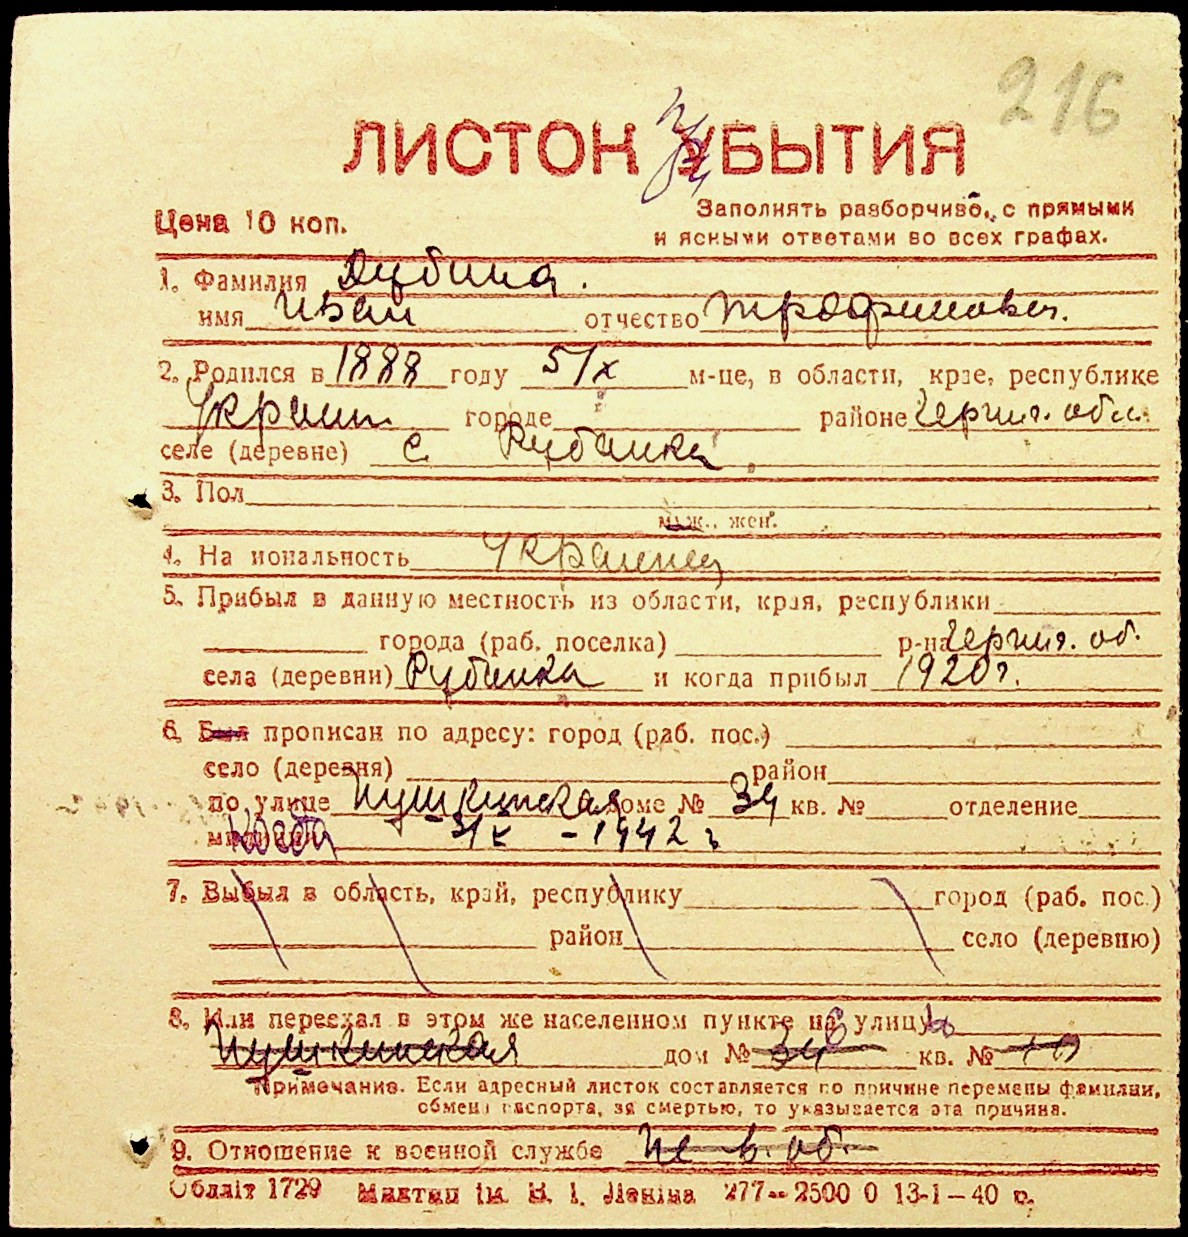 216
ЛИСТОК УБЫТИЯ
Цена 10 коп.
Заполнять разборчиво, с прямыми
и ясными ответами во всех графах.
1. Фамилия Дубина.
имя Иван отчество Трофимович.
2. Родился в 1888 году 5/X м-це, в области, крае, республике
Украин. городе районе Черниг. обл.
селе (деревне) с. Рубанка
3. Пол
муж., жен.
4. На иональность Украинец
5. Прибыл в данную местность из области, края, республики
города (раб. поселка) р-на Черниг. об.
села (деревни) Рубанка и когда прибыл 1920 г.
6. Был прописан по адресу: город (раб. пос.)
село (деревня) район
по улице Пушкинская доме № 34 кв. № отделение
1942 г
7. Выбыл в область, край, республику город (раб. пос.)
район село (деревню)
8. Или переехал в этом же населенном пункте на улицу
Пушкинская дом № 34 кв. №
Примечание. Если адресный листок составляется по причине перемены фамилии,
обмена паспорта, за смертью, то указывается эта причина.
9. Отношение к военной службе Не в. об.
Обліт 1729 Миктип ім. В. І. Леніна 277—2500 0 13-1—40 р.